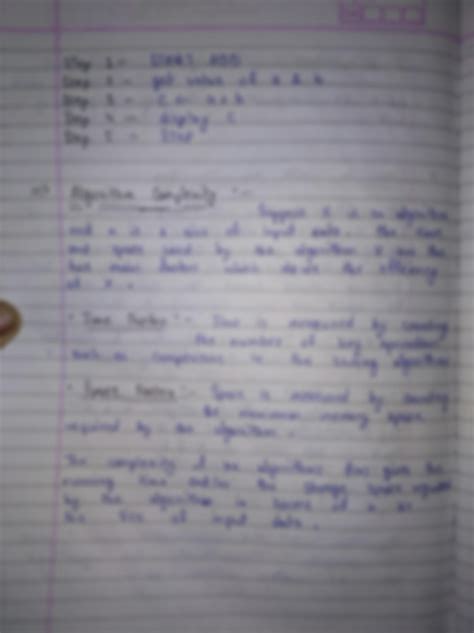 Step 1 - START ADD
Step 2 - get value of a & b
Step 3 - c ← a + b
Step 4 - display c
Step 5 - Stop
Algorithm Complexity :-
Suppose X is an algorithm
and n is a size of input data. the time
and space used by the algorithm X are the
two main factors which decide the efficiency
of X.
• Time Factor :- Time is measured by counting
the number of key operations
such as comparisons in the sorting algorithm
• Space Factor :- Space is measured by counting
the maximum memory space
required by the algorithm.
The complexity of an algorithm f(n) gives the
running time and/or the storage space required
by the algorithm in terms of n as
the size of input data.